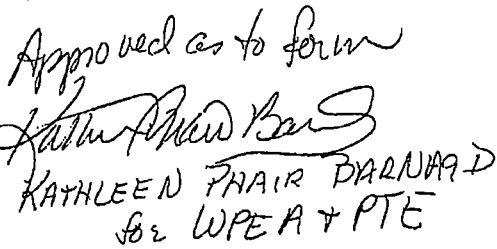 Approved as to form
Kathleen Phair Barnard
KATHLEEN PHAIR BARNARD
for WPEA + PTE